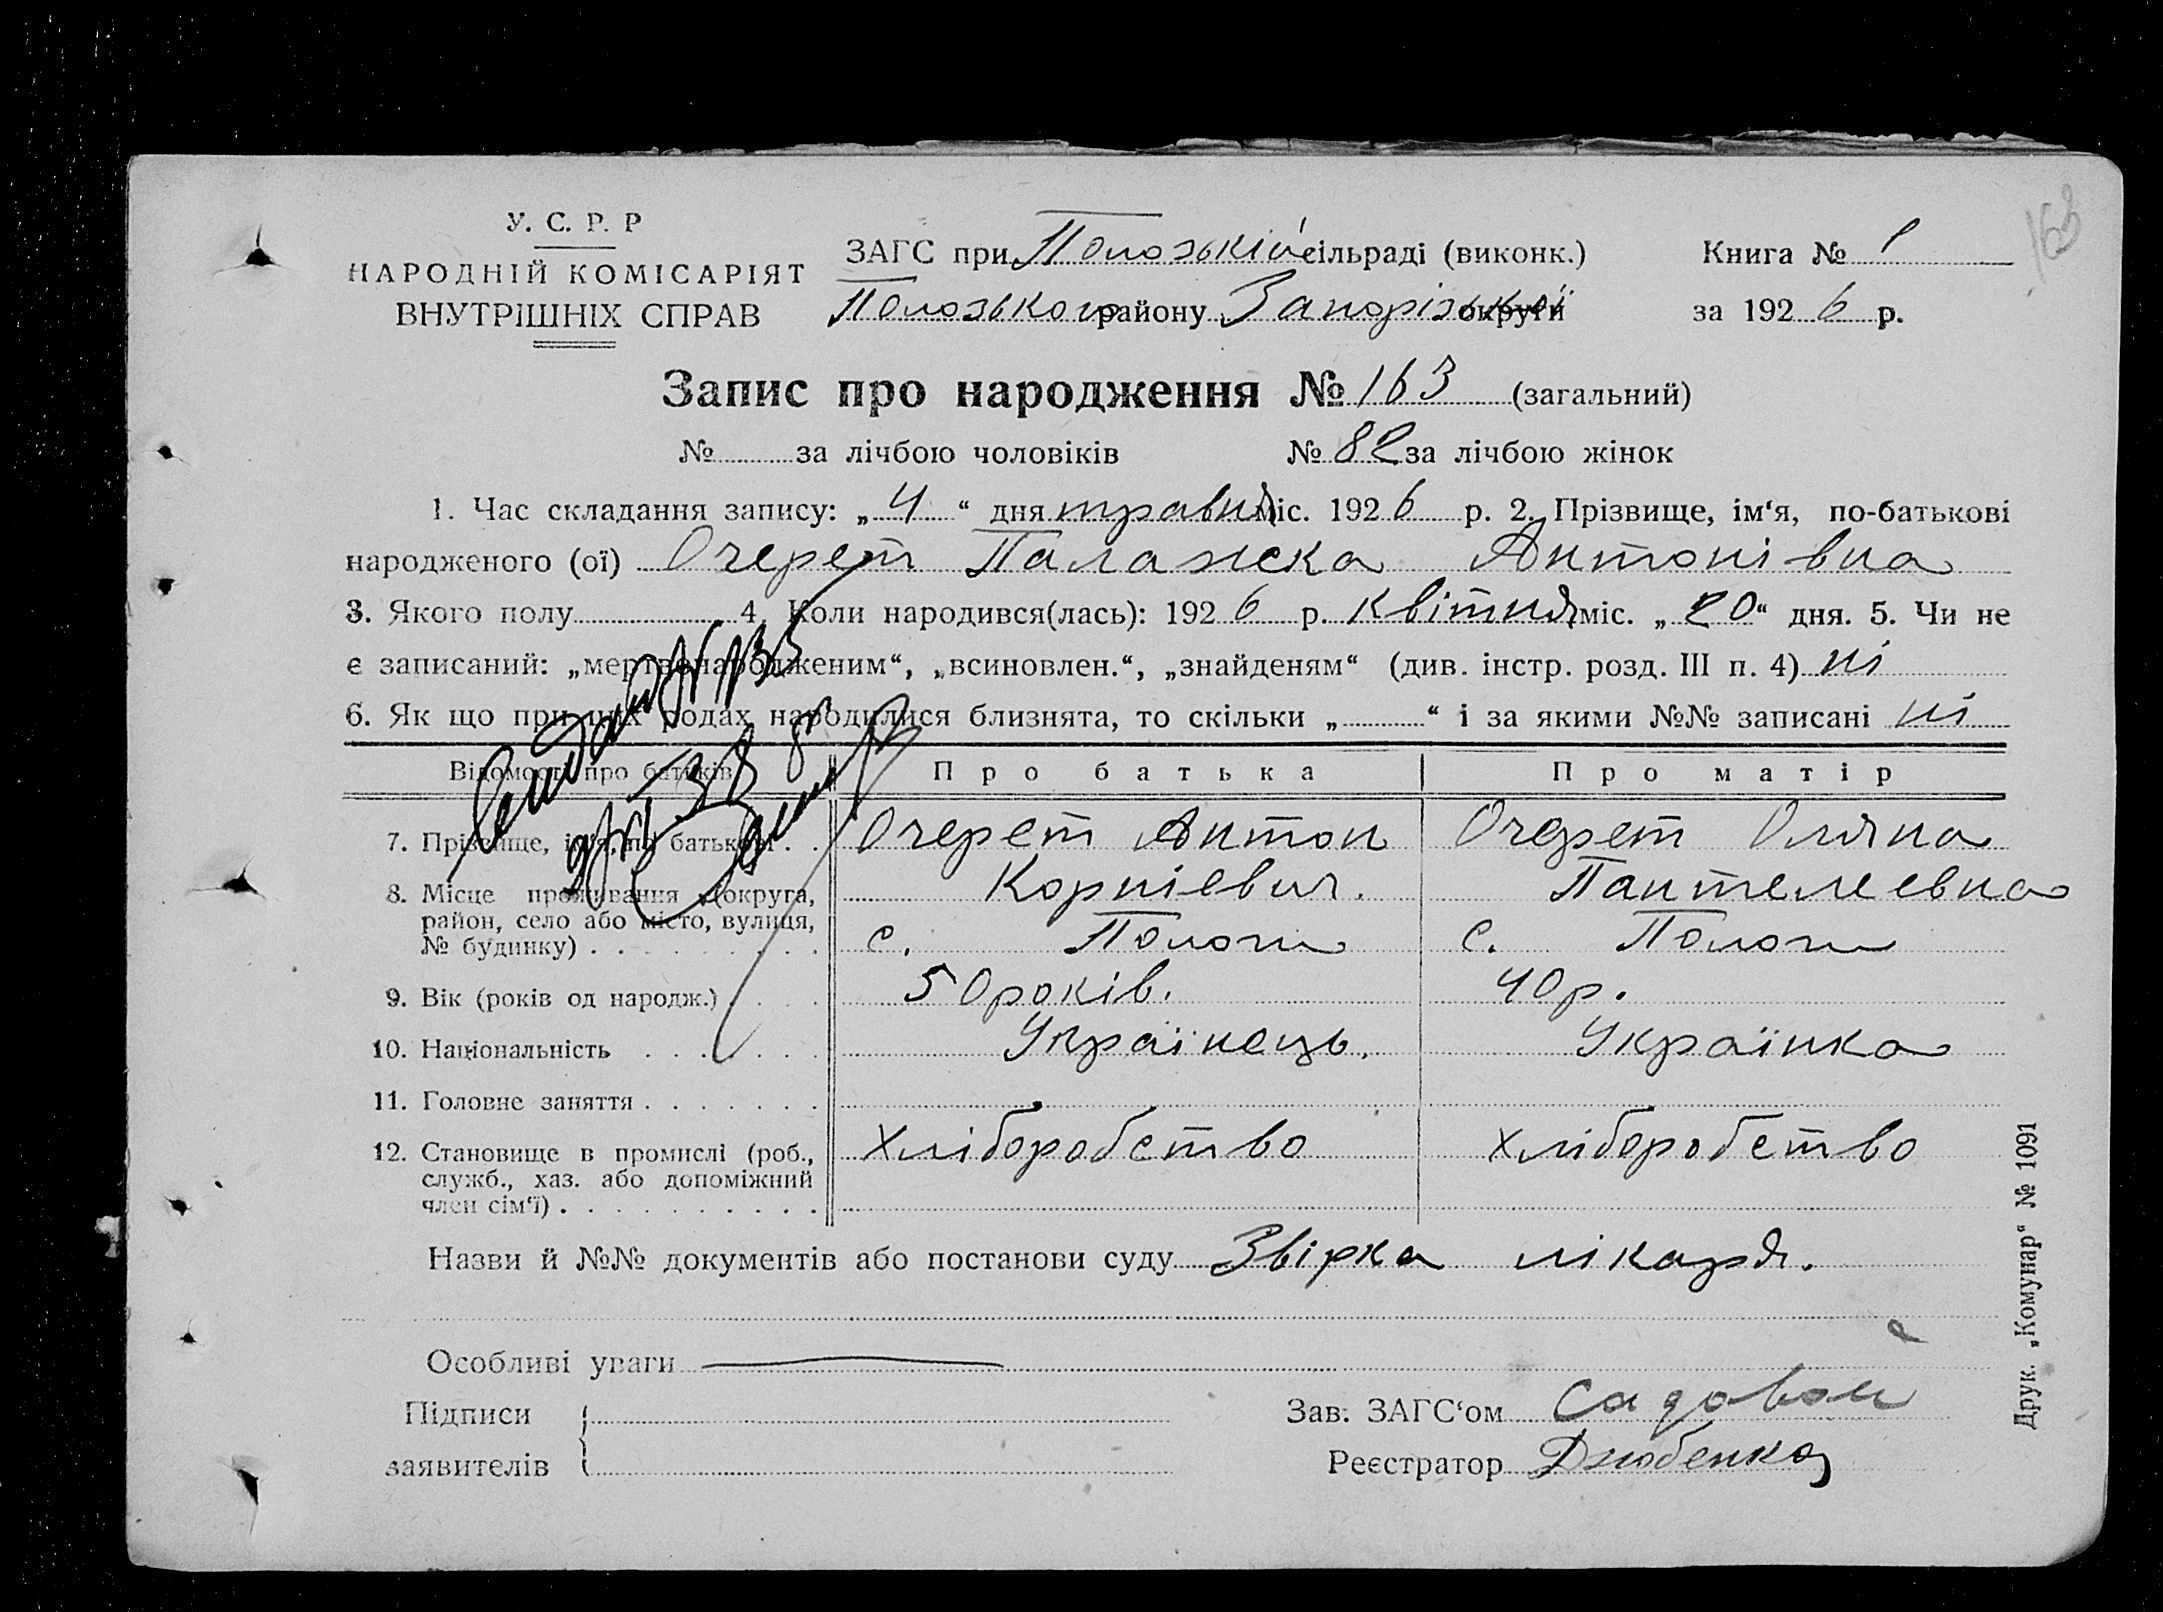 163
У. С. Р. Р
НАРОДНІЙ КОМІСАРІЯТ
ВНУТРІШНІХ СПРАВ
ЗАГС при Полозькій сільраді (виконк.)
Полозького району Запорізької округи
Книга № 1
за 1926 р.
Запис про народження № 163 (загальний)
№ за лічбою чоловіків № 82 за лічбою жінок
1. Час складання запису: „4“ дня травня міс. 1926 р. 2. Прізвище, ім‘я, по-батькові
народженого (ої) Очерет Палажка Антонівна
3. Якого полу 4. Коли народився(лась): 1926 р. квітня міс. „20“ дня. 5. Чи не
є записаний: „мертвонародженим“, „всиновлен.“, „знайденям“ (див. інстр. розд. III п. 4) ні
6. Як що при цих родах народилися близнята, то скільки „ “ і за якими №№ записані ні
Відомості про батьків Про батька Про матір
7. Прізвище, ім‘я, по батькові . . Очерет Антон Очерет Оляна
Корнієвич. Пантелеевна
8. Місце проживання (округа,
район, село або місто, вулиця,
№ будинку) . . . . . . . . . с. Пологи с. Пологи
9. Вік (років од народж.) . . . . 50 років. 40 р.
10. Національність . . . . . . . Українець. Українка
11. Головне заняття . . . . . . .
12. Становище в промислі (роб.,
служб., хаз. або допоміжний
член сім‘ї) . . . . . . . . . . хлiборобство хлiборобство
Назви й №№ документів або постанови суду Звірка лікаря.
Особливі уваги
Підписи
заявителів
Зав. ЗАГС‘ом Садовой
Реєстратор Дзюбенко
Друк. „Комунар“ № 1091